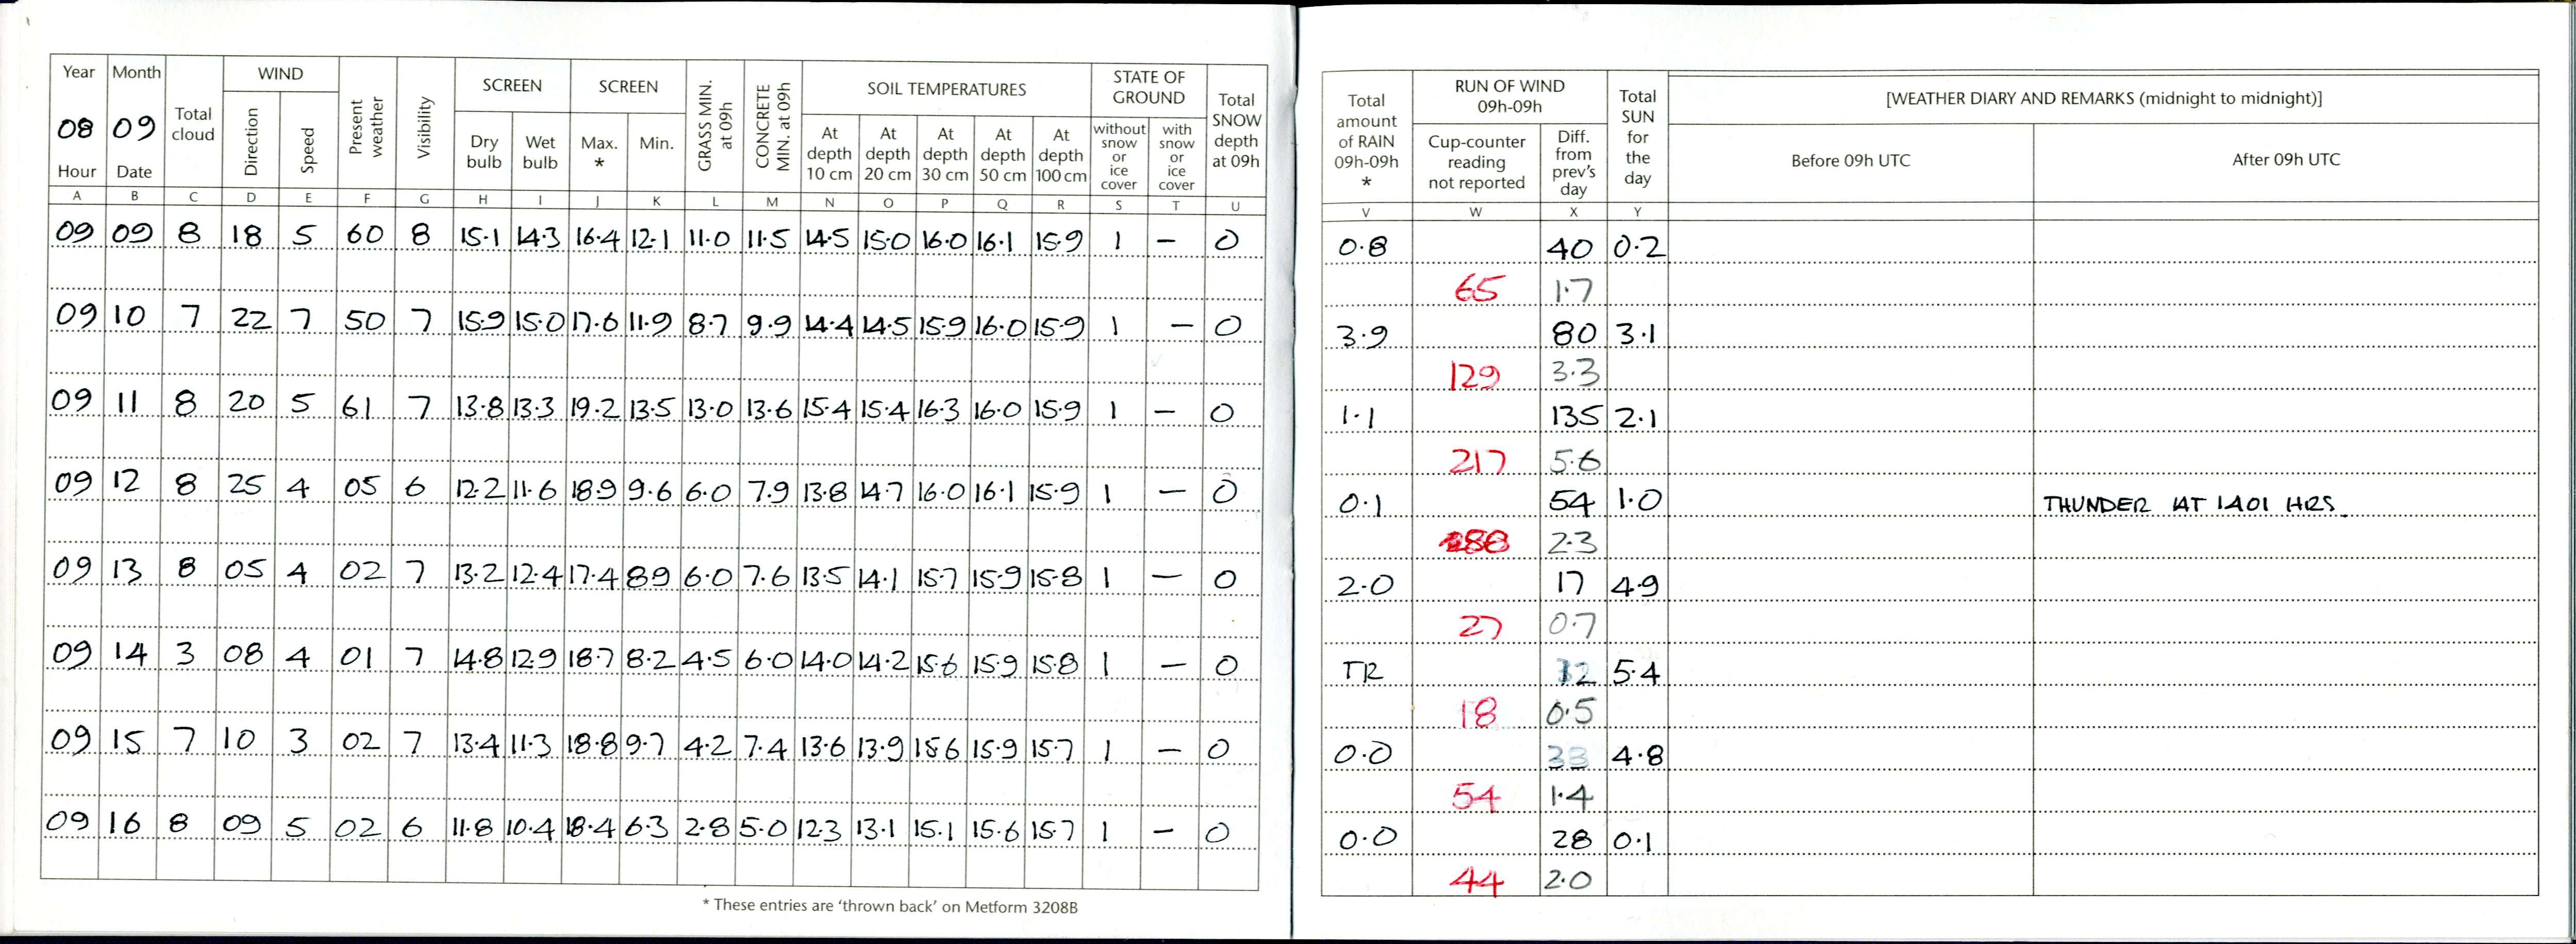 Year Month Total cloud WIND Present weather Visibility SCREEN SCREEN GRASS MIN. at 09h CONCRETE MIN. at 09h SOIL TEMPERATURES STATE OF GROUND Total SNOW depth at 09h
08 09 Direction Speed Dry bulb Wet bulb Max. * Min. At depth 10 cm At depth 20 cm At depth 30 cm At depth 50 cm At depth 100 cm without snow or ice cover with snow or ice cover
Hour Date
A B C D E F G H I J K L M N O P Q R S T U
09 09 8 18 5 60 8 15.1 14.3 16.4 12.1 11.0 11.5 14.5 15.0 16.0 16.1 15.9 1 – 0
09 10 7 22 7 50 7 15.9 15.0 17.6 11.9 8.7 9.9 14.4 14.5 15.9 16.0 15.9 1 – 0
09 11 8 20 5 61 7 13.8 13.3 19.2 13.5 13.0 13.6 15.4 15.4 16.3 16.0 15.9 1 – 0
09 12 8 25 4 05 6 12.2 11.6 18.9 9.6 6.0 7.9 13.8 14.7 16.0 16.1 15.9 1 – 0
09 13 8 05 4 02 7 13.2 12.4 17.4 8.9 6.0 7.6 13.5 14.1 15.7 15.9 15.8 1 – 0
09 14 3 08 4 01 7 14.8 12.9 18.7 8.2 4.5 6.0 14.0 14.2 15.6 15.9 15.8 1 – 0
09 15 7 10 3 02 7 13.4 11.3 18.8 9.7 4.2 7.4 13.6 13.9 15.6 15.9 15.7 1 – 0
09 16 8 09 5 02 6 11.8 10.4 18.4 6.3 2.8 5.0 12.3 13.1 15.1 15.6 15.7 1 – 0
* These entries are ‘thrown back’ on Metform 3208B
Total amount of RAIN 09h-09h * RUN OF WIND 09h-09h Total SUN for the day [WEATHER DIARY AND REMARKS (midnight to midnight)]
Cup-counter reading not reported Diff. from prev's day Before 09h UTC After 09h UTC
V W X Y
0.8 40 0.2
65 1.7
3.9 80 3.1
129 3.3
1.1 135 2.1
217 5.6
0.1 54 1.0 THUNDER AT 1401 HRS.
88 2.3
2.0 17 4.9
27 0.7
TR 12 5.4
18 0.5
0.0 33 4.8
54 1.4
0.0 28 0.1
44 2.0